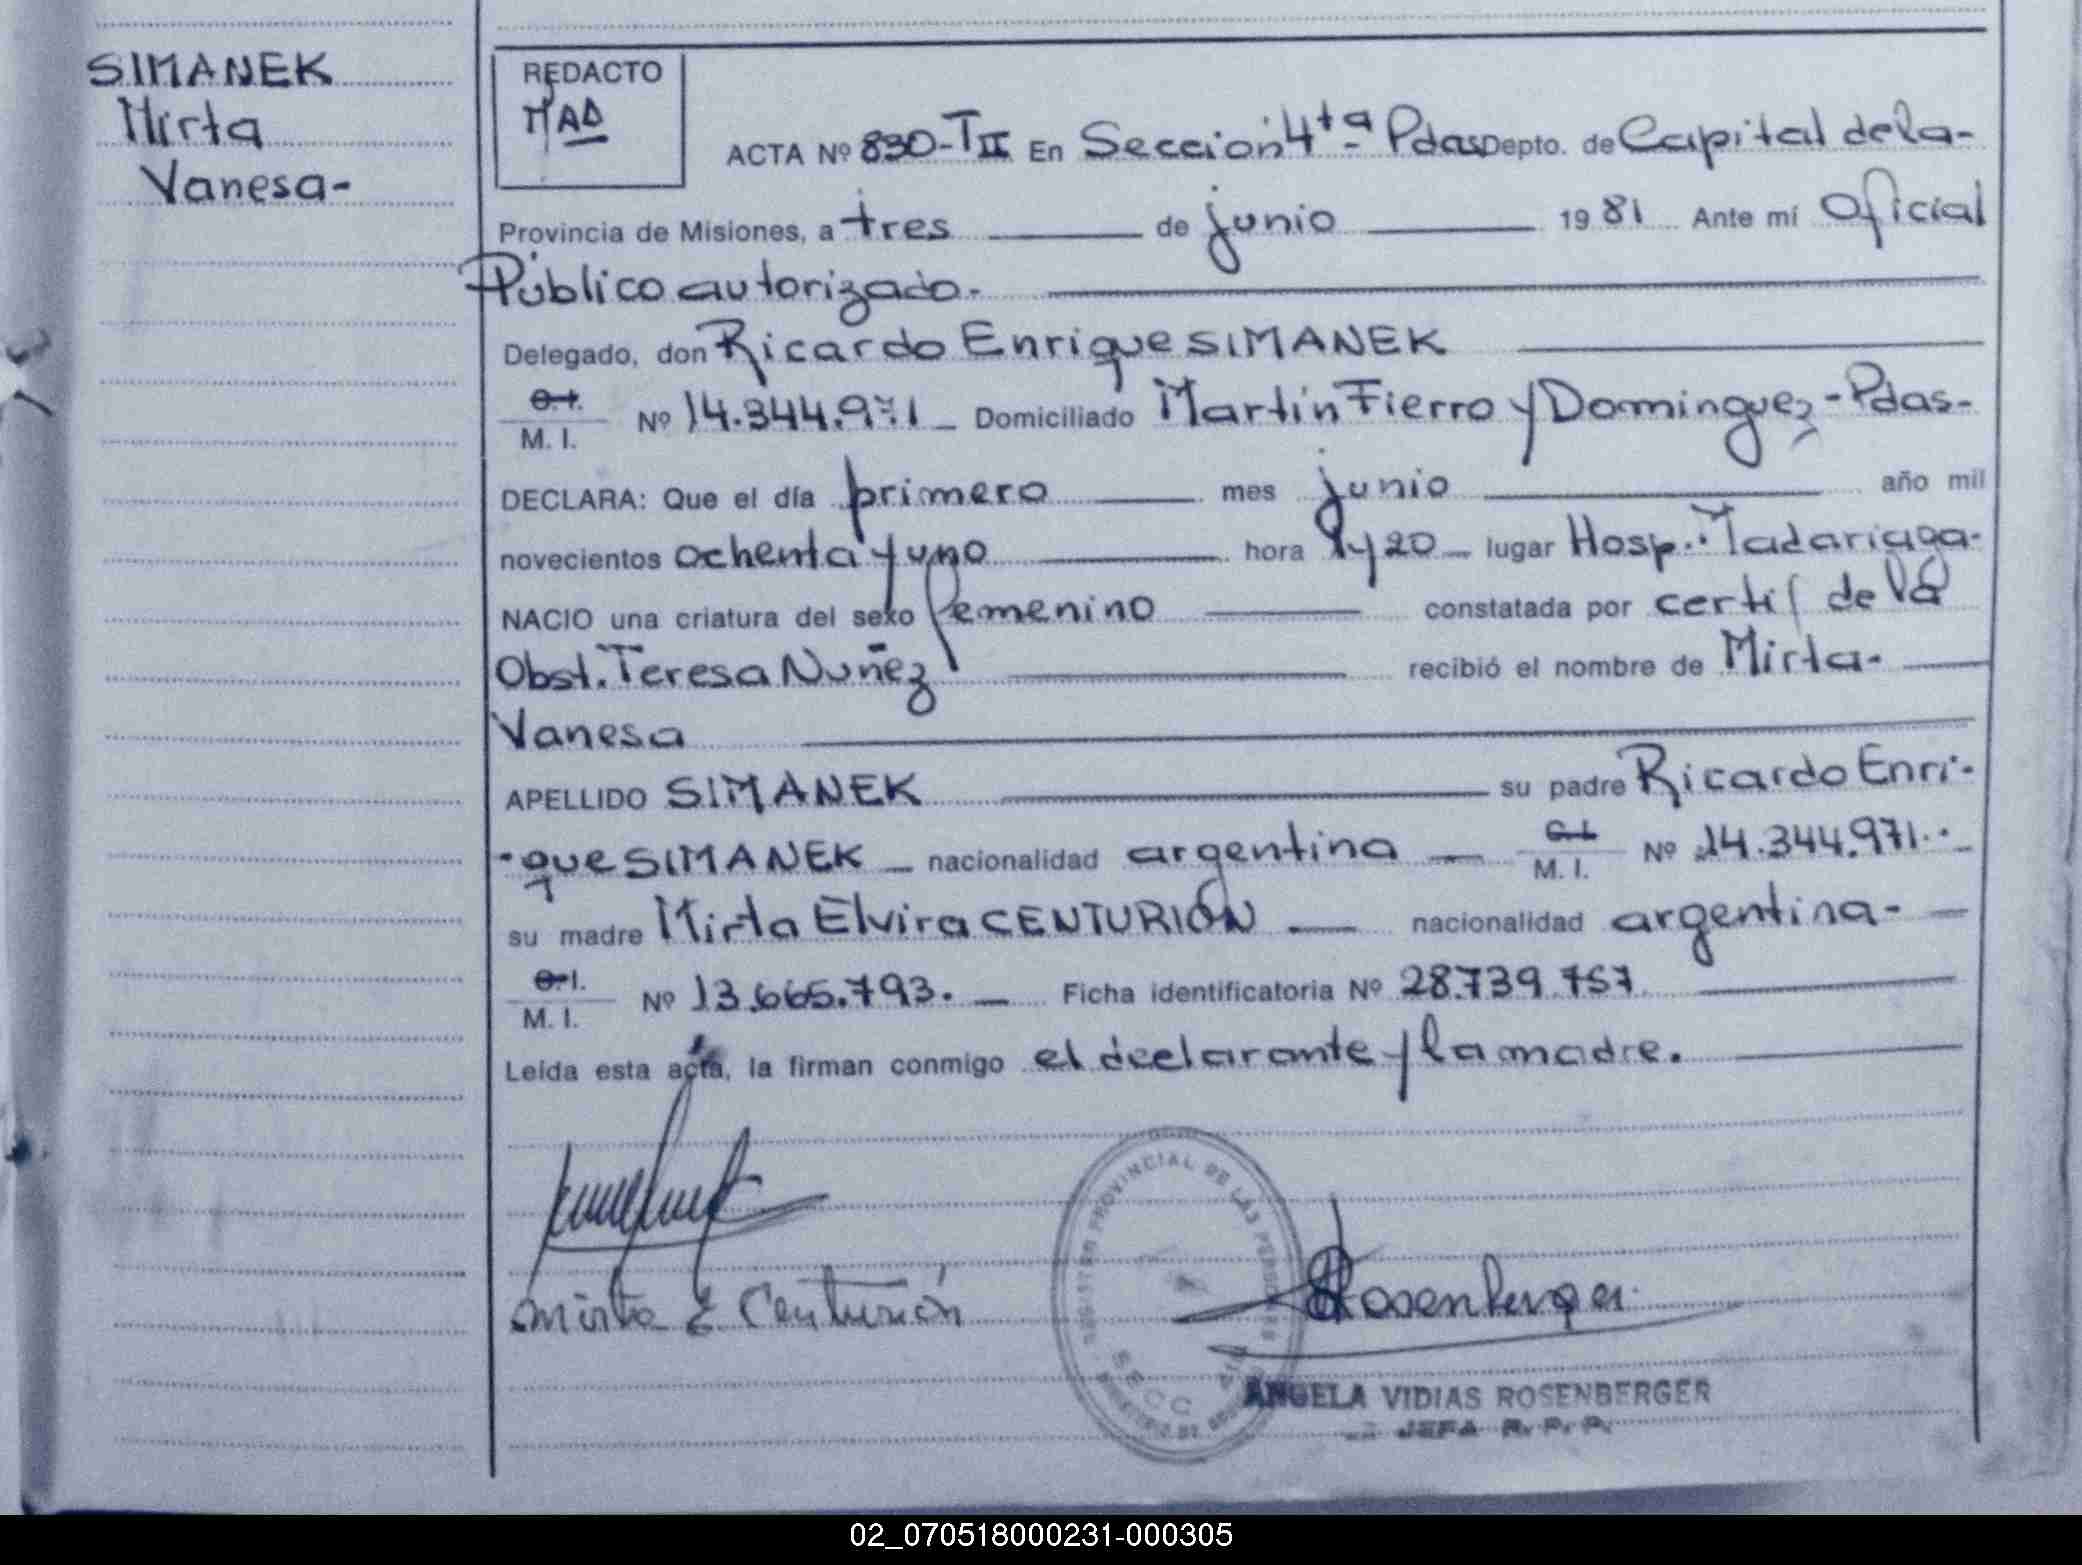 SIMANEK
Mirta
Vanesa-
REDACTO
MAD
ACTA Nº 830-TII En Sección 4ta- Pdas Depto. de Capital de la-
Provincia de Misiones, a tres de junio 1981 Ante mí Oficial
Público autorizado.-
Delegado, don Ricardo Enrique SIMANEK
C. I.
M. I. Nº 14.344.971 Domiciliado Martín Fierro y Dominguez - Pdas-
DECLARA: Que el día primero mes junio año mil
novecientos ochenta y uno hora 9 y 20 lugar Hosp. Madariaga-
NACIO una criatura del sexo femenino constatada por certif de la
Obst. Teresa Nuñez recibió el nombre de Mirta-
Vanesa
APELLIDO SIMANEK su padre Ricardo Enri-
-que SIMANEK nacionalidad argentina C. I.
M. I. Nº 14.344.971.-
su madre Mirta Elvira CENTURIÓN nacionalidad argentina-
C. I.
M. I. Nº 13.665.793. Ficha identificatoria Nº 28.739.757
Leída esta acta, la firman conmigo el declarante y la madre.
REGISTRO PROVINCIAL DE LAS PERSONAS
SECC
Mirta E Centurión
Rosenberger
ANGELA VIDIAS ROSENBERGER
JEFA R. P. P.
02_070518000231-000305